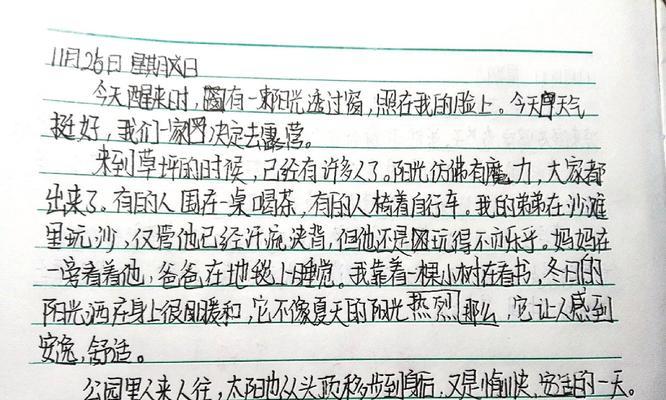 11月26日 星期日
今天醒来时，有一束阳光透过窗，照在我的脸上。今天早天气
挺好，我们一家决定去露营。
来到草坪的时候，已经有许多人了。阳光仿佛有魔力，大家都
出来了。有的人围在一桌喝茶，有的人骑着自行车。我的弟弟在沙滩
里玩沙，仅管他已经汗流浃背，但他还是玩得不亦乐乎。妈妈在
一旁看着他，爸爸在地毯上睡觉。我靠着一棵小树在看书，冬日的
阳光洒在身上很暖和，它不像夏天的阳光热烈那么，它让人感到
安逸，舒适。
公园里人来人往，太阳也从头顶移步到身后，又是愉快，安适的一天。